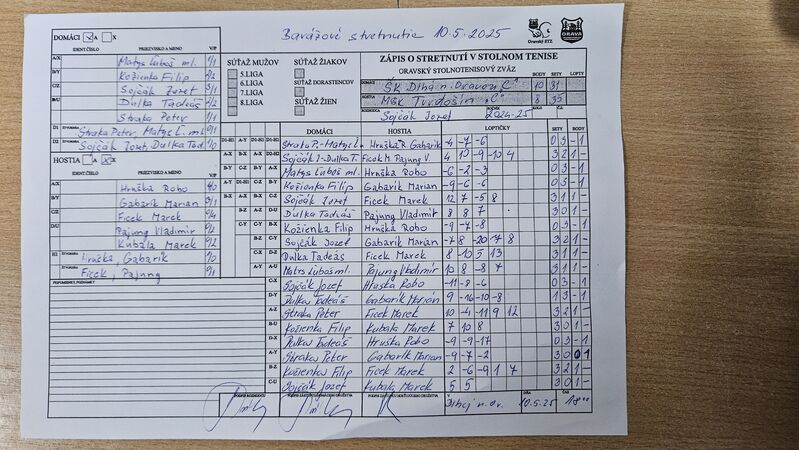 Barážové stretnutie 10.5.2025
Oravský STZ
ORAVA
DOMÁCI A X
IDENT.ČÍSLO PRIEZVISKO A MENO V/P
A/X Matys Ľuboš ml. 1/1
B/Y Kožienka Filip 2/2
C/Z Sojčák Jozef 3/1
D/U Dulka Tadeáš 2/2
Straka Peter 1/1
D1 Straka Peter, Matys L. ml. 0/1
D2 Sojčák Jozef, Dulka Tad. 1/0
HOSTIA A X
IDENT.ČÍSLO PRIEZVISKO A MENO V/P
A/X Hruška Robo 4/0
B/Y Gabarik Marian 3/1
C/Z Ficek Marek 0/4
D/U Pajung Vladimir 0/2
Kubala Marek 0/2
H1 Hruška, Gabarik 1/0
Ficek, Pajung 0/1
PRIPOMIENKY, POZNÁMKY
SÚŤAŽ MUŽOV
5.LIGA
6.LIGA
7.LIGA
8.LIGA
SÚŤAŽ ŽIAKOV
SÚŤAŽ DORASTENCOV
SÚŤAŽ ŽIEN
ZÁPIS O STRETNUTÍ V STOLNOM TENISE
ORAVSKÝ STOLNOTENISOVÝ ZVÄZ
BODY SETY LOPTY
DOMÁCI ŠK Dlhá n. Oravou "C" 10 31
HOSTIA MŠK Tvrdošín "C" 8 35
Sojčák Jozef 2024-25
DOMÁCI HOSTIA LOPTIČKY SETY BODY
Straka P.-Matys L. Hruška R. Gabarik -4 -7 -6 0 3 - 1
Sojčák J-Dulka T. Ficek M. Pajung V. 4 10 -9 -10 4 3 2 1 -
Matys Luboš ml. Hruška Robo -6 -2 -3 0 3 - 1
Kožienka Filip Gabarik Marian -9 -6 -6 0 3 - 1
Sojčák Jozef Ficek Marek 12 7 -5 8 3 1 1 -
Dulka Tadeáš Pajung Vladimir 8 8 7 3 0 1 -
Kožienka Filip Hruška Robo -9 -7 -8 0 3 - 1
Sojčák Jozef Gabarik Marian -7 8 -20 7 8 3 2 1 -
Dulka Tadeáš Ficek Marek 8 -10 5 13 3 1 1 -
Matys Luboš ml. Pajung Vladimir 10 8 -8 7 3 1 1 -
Sojčák Jozef Hruška Robo -11 -8 -6 0 3 - 1
Dulka Tadeáš Gabarik Marian 9 -16 -10 -8 1 3 - 1
Straka Peter Ficek Marek 10 -4 -11 9 12 3 2 1 -
Kožienka Filip Kubala Marek 7 10 8 3 0 1 -
Dulka Tadeáš Hruška Robo -9 -9 -17 0 3 - 1
Straka Peter Gabarik Marian -9 -7 -2
Kožienka Filip Ficek Marek 2 -6 -9 1 7 3 2 1 -
Sojčák Jozef Kubala Marek 5 5 3 0 1 -
10.5.25 18